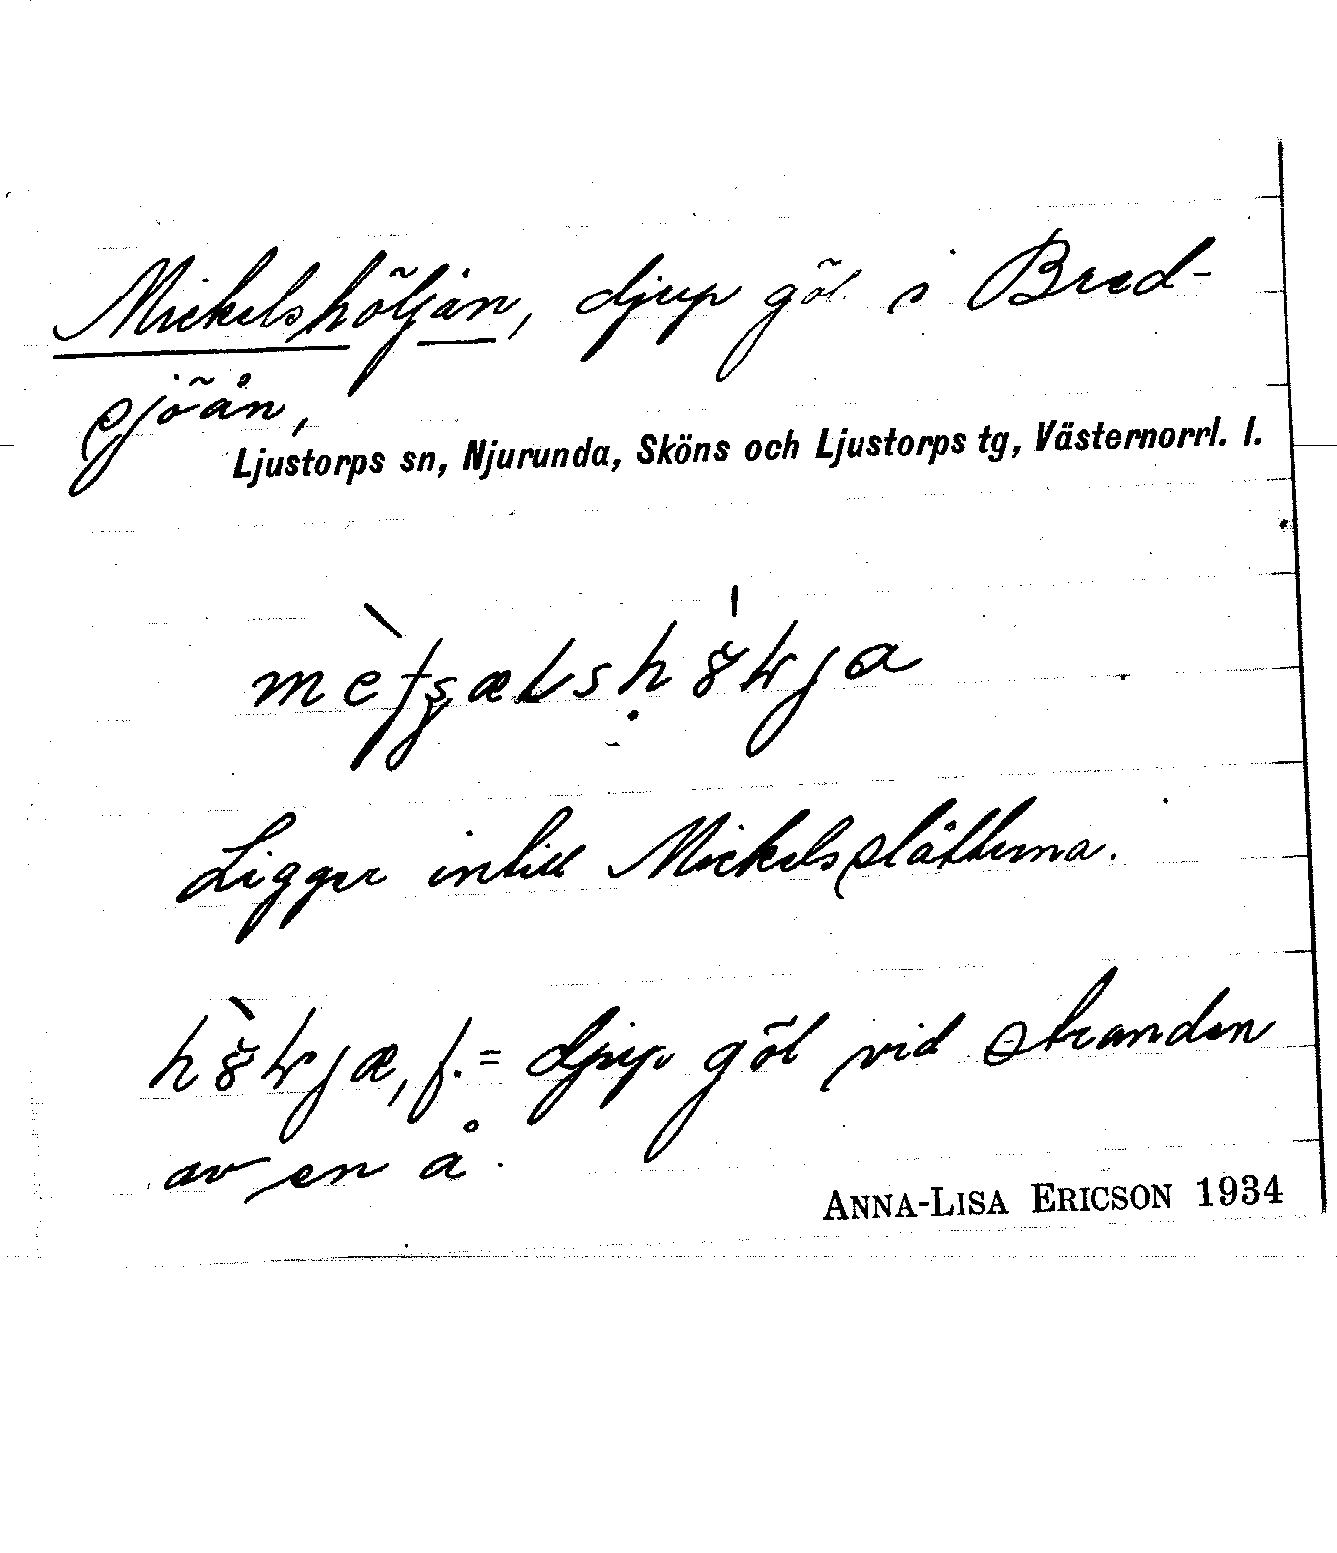 Mickelshöljan, djup göl i Bred-
sjöån,
Ljustorps sn, Njurunda, Sköns och Ljustorps tg, Västernorrl. l.
Ligger intill Mickelsslåtterna.
f. = djup göl vid stranden
av en å.
ANNA-LISA ERICSON 1934